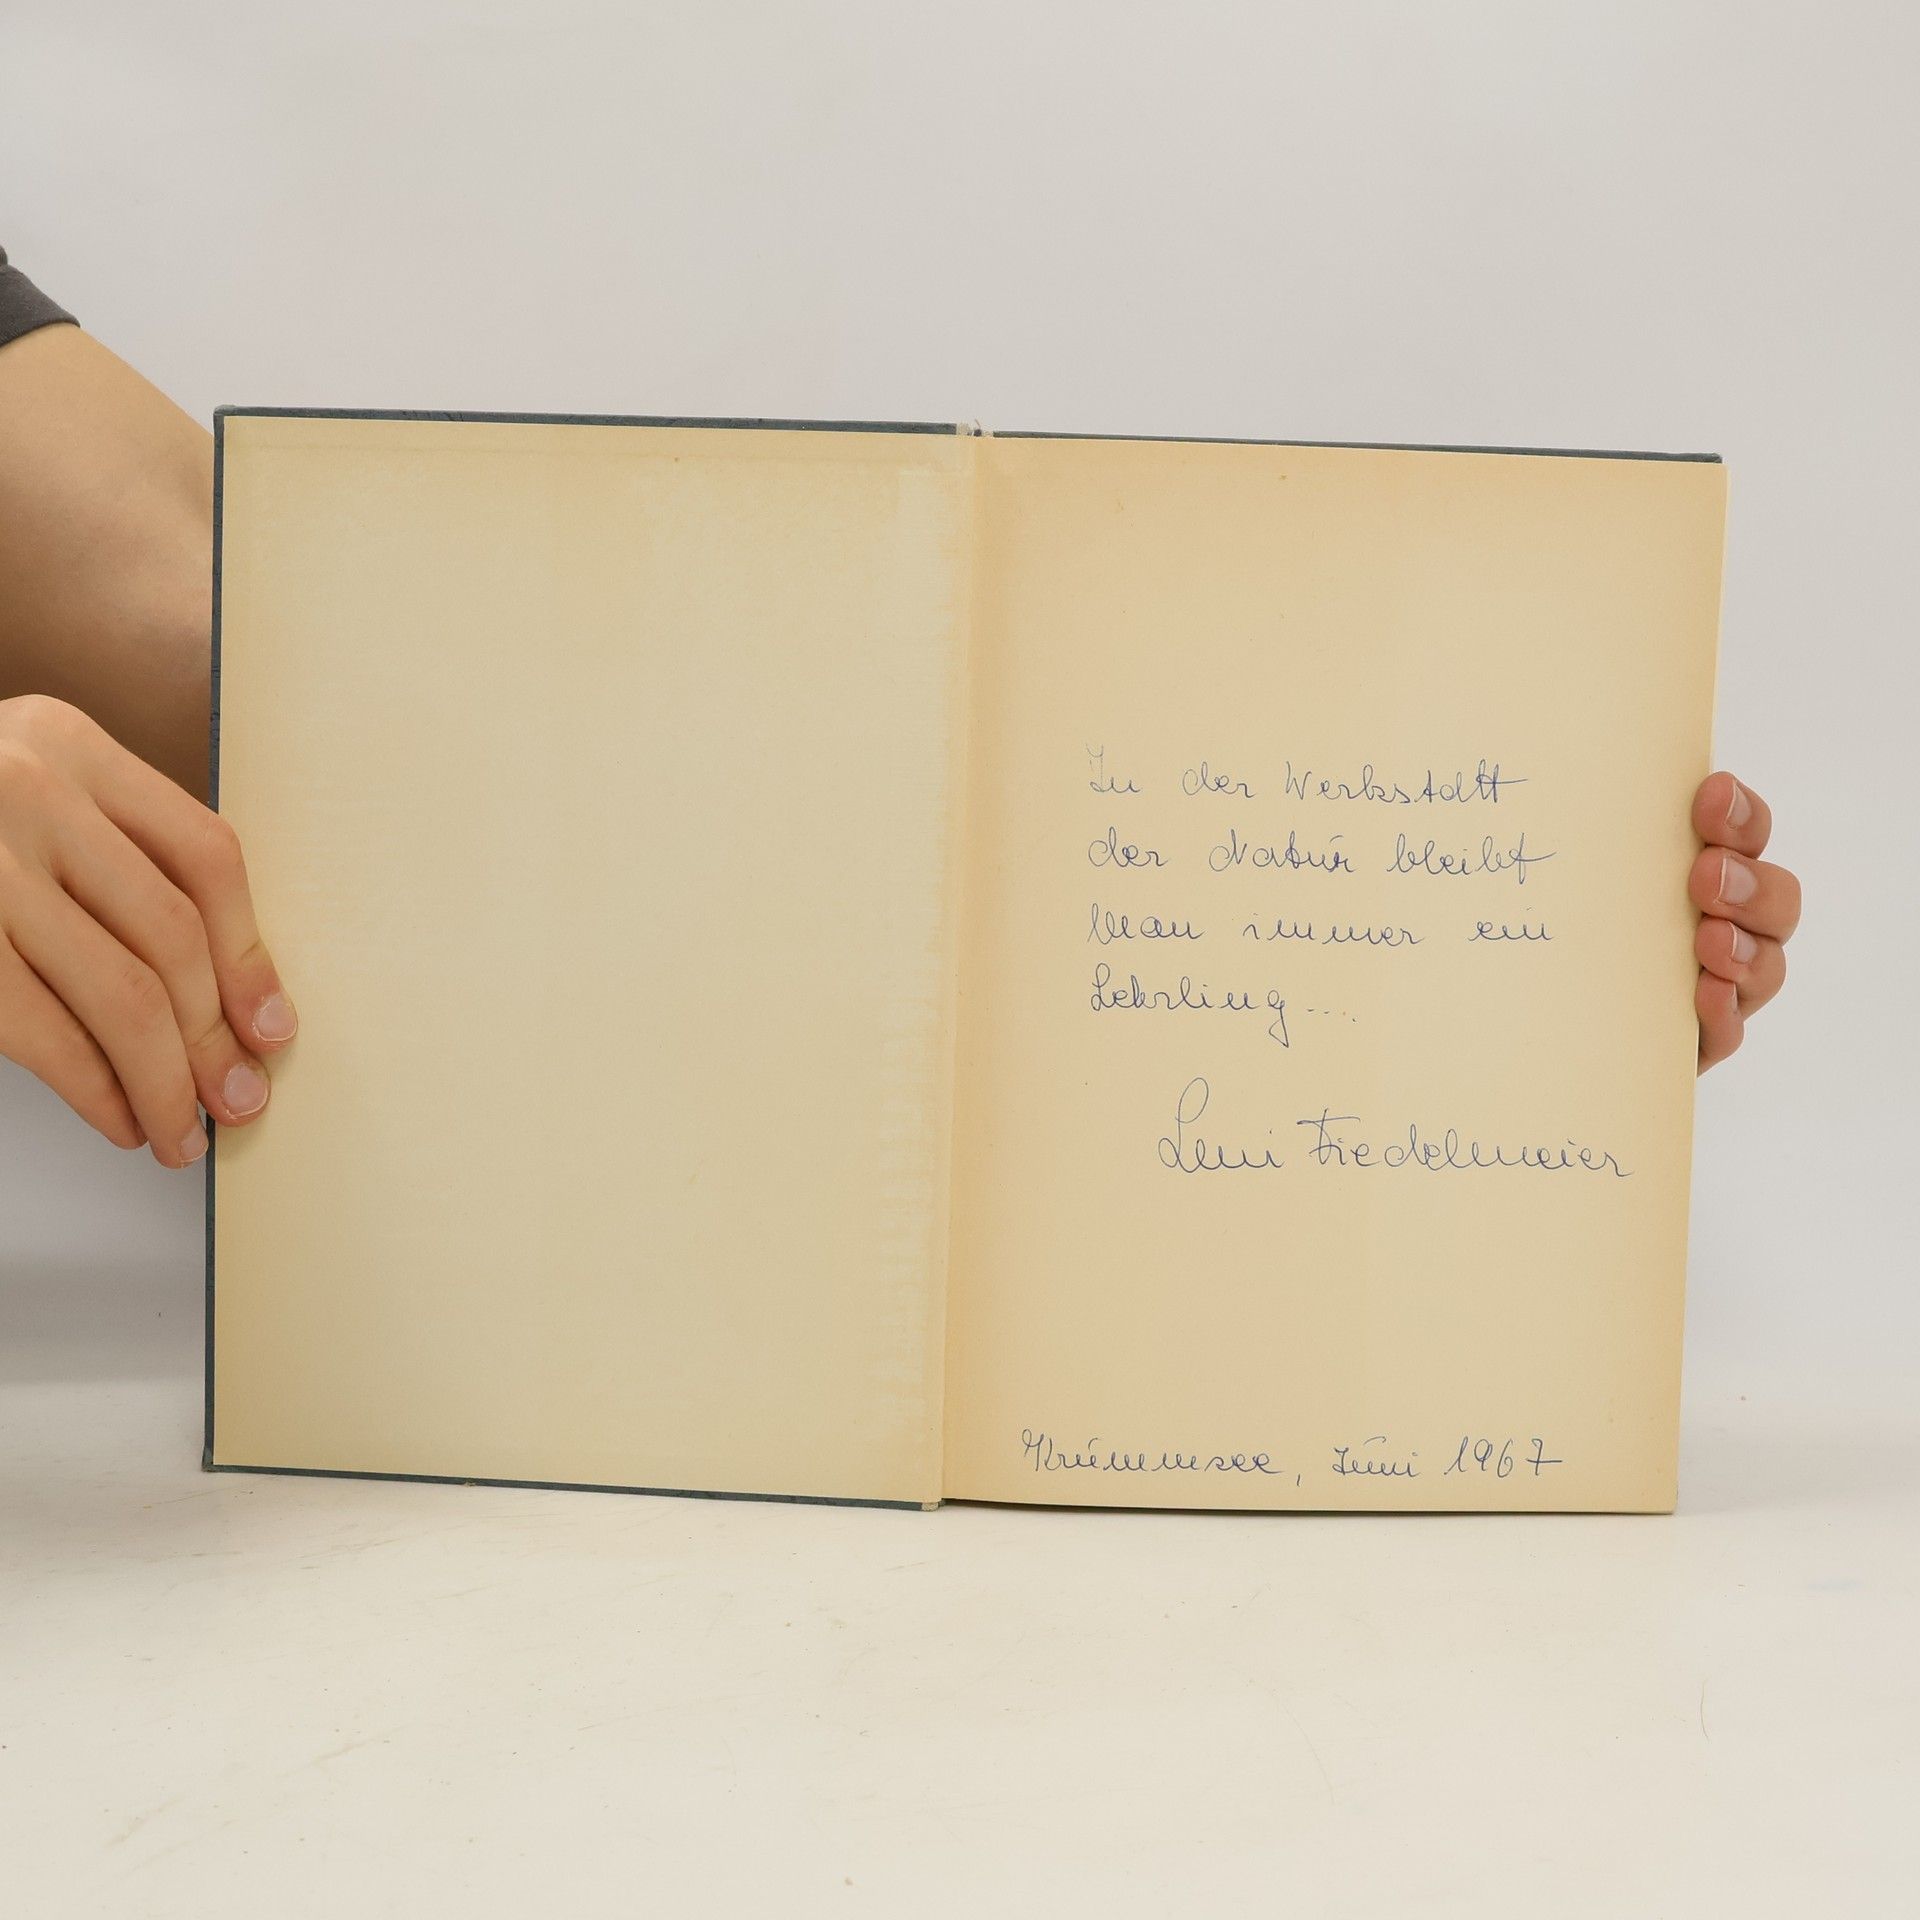 In der Werkstatt
der Natur bleibt
man immer ein
Lehrling....
Leni Fiedelmeier
Krummsee, Juni 1967